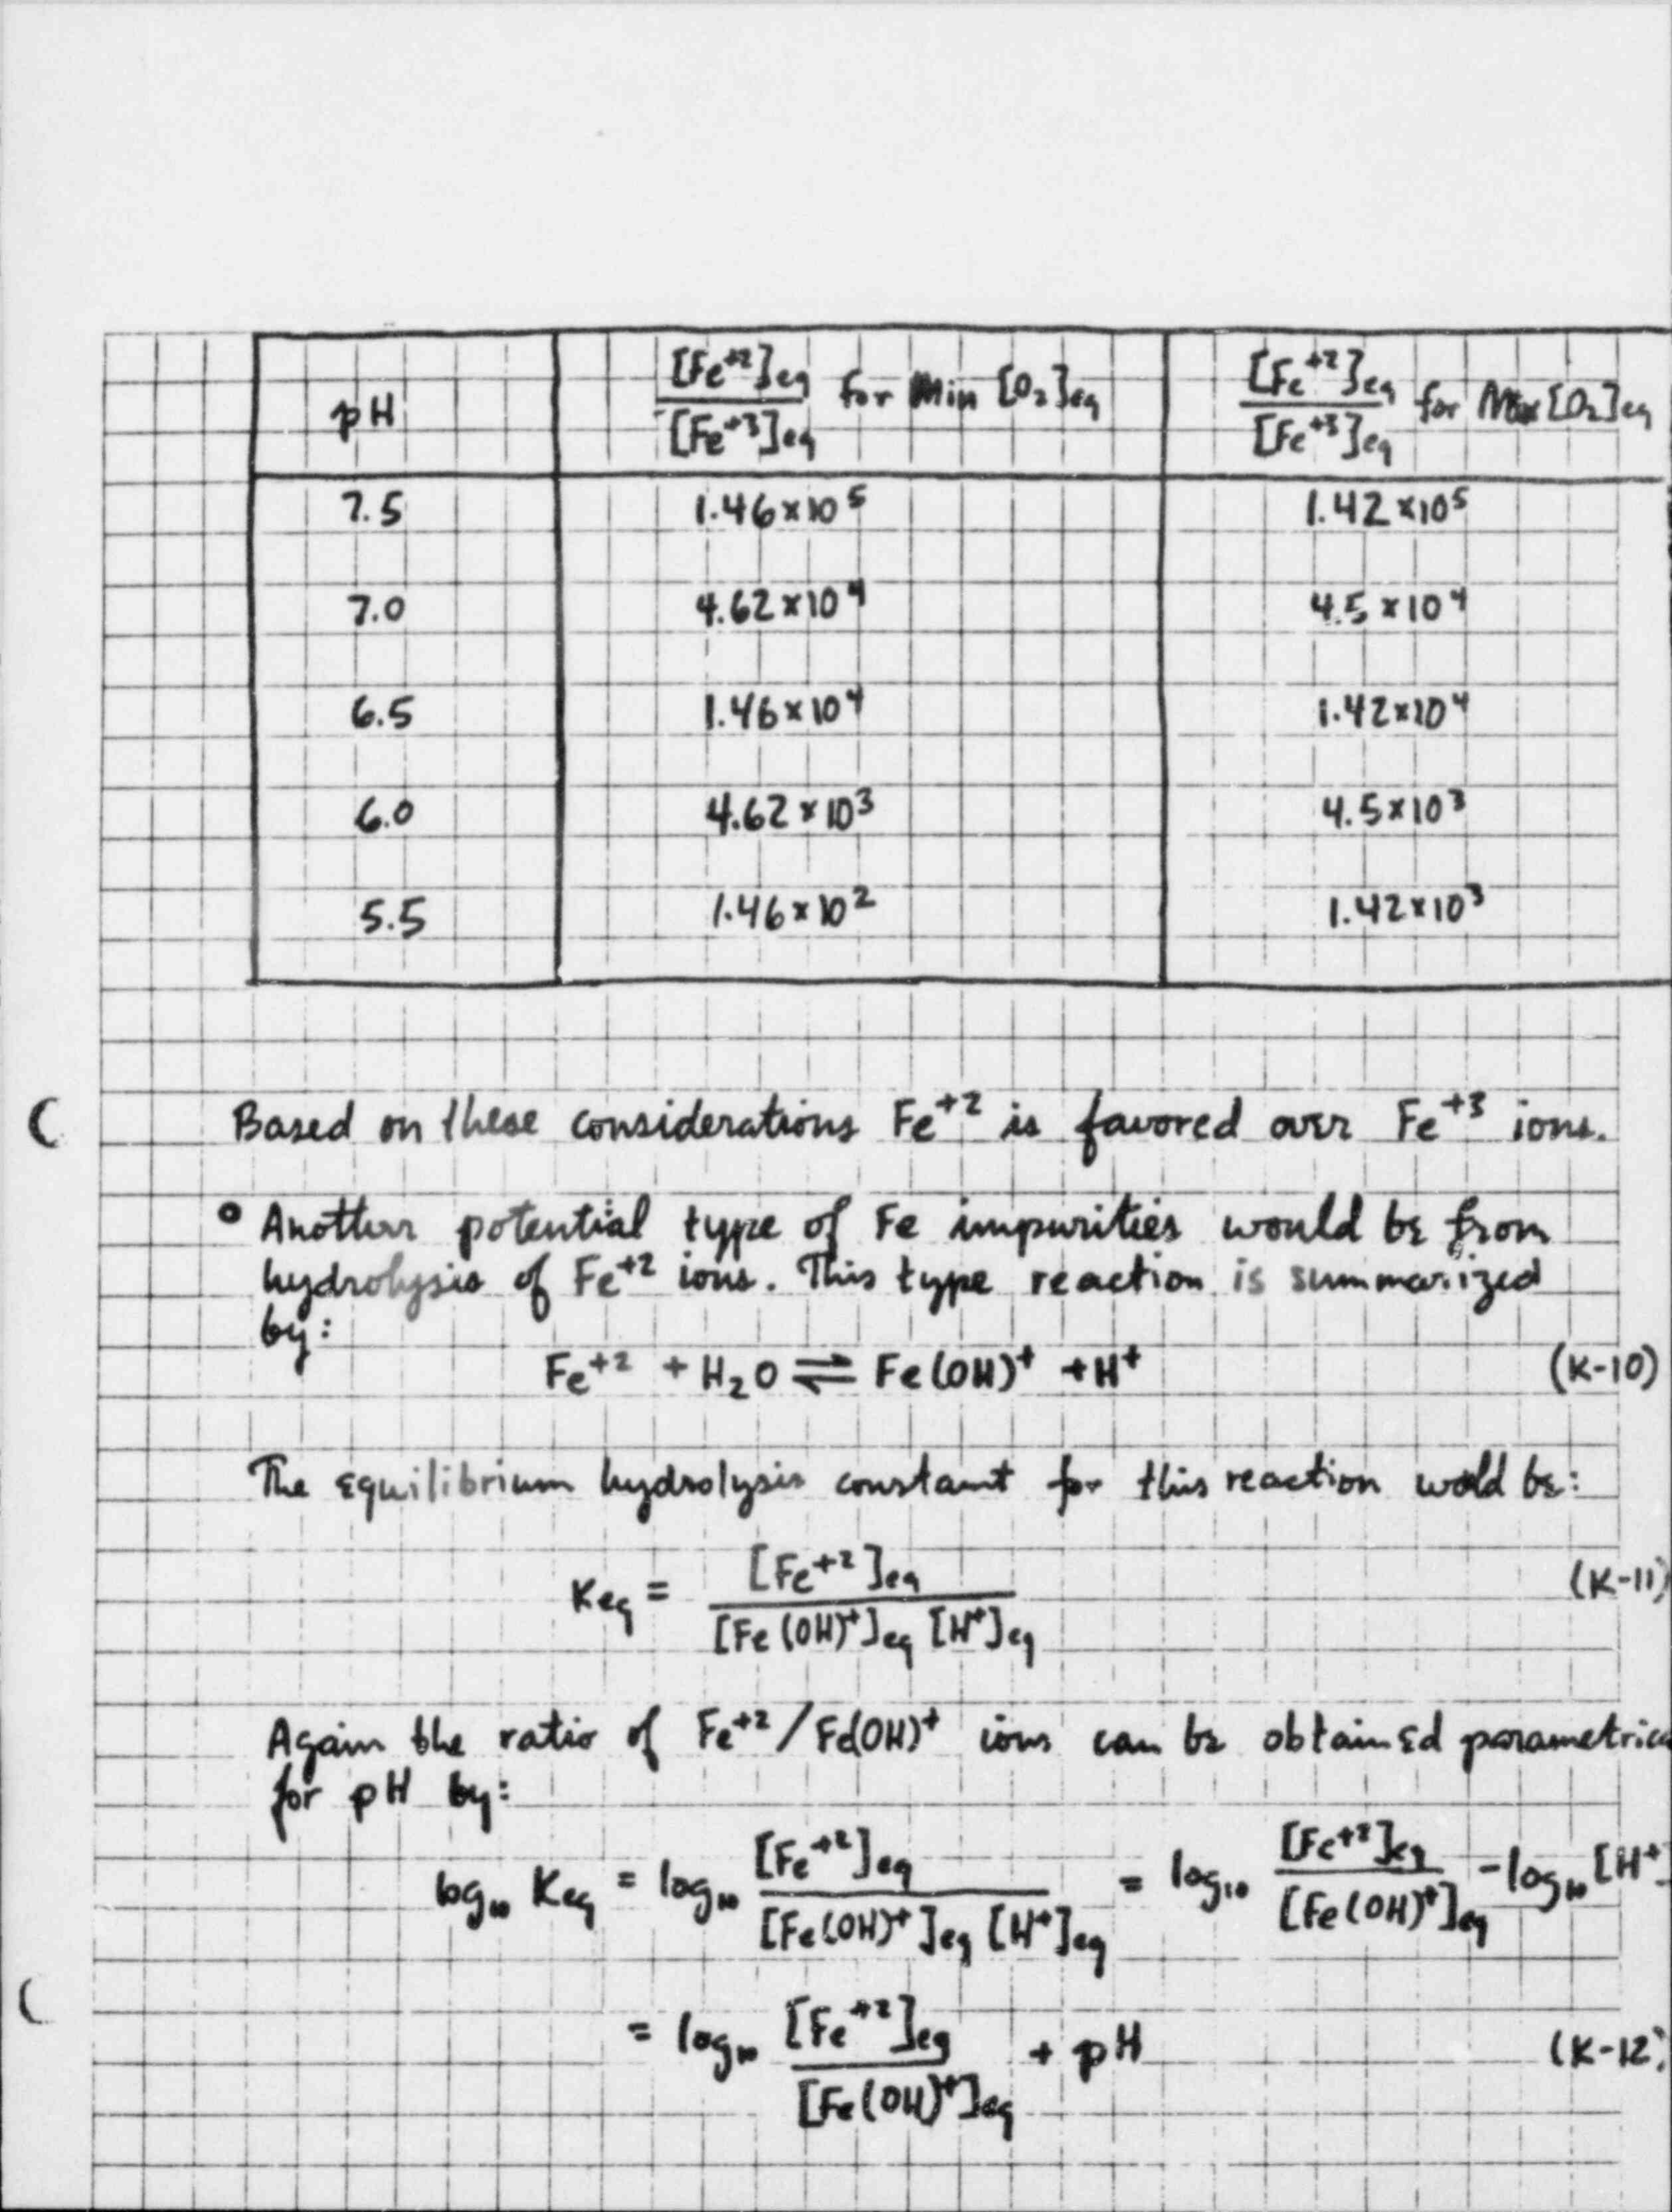 pH [Fe+2]eq / [Fe+3]eq for Min [O2]eq [Fe+2]eq / [Fe+3]eq for Max [O2]eq
7.5 1.46×10^5 1.42×10^5
7.0 4.62×10^4 4.5×10^4
6.5 1.46×10^4 1.42×10^4
6.0 4.62×10^3 4.5×10^3
5.5 1.46×10^2 1.42×10^3
Based on these considerations Fe+2 is favored over Fe+3 ions.
° Another potential type of Fe impurities would be from
hydrolysis of Fe+2 ions. This type reaction is summarized
by:
Fe+2 + H2O ⇌ Fe(OH)+ + H+ (K-10)
The equilibrium hydrolysis constant for this reaction wold be:
Keq = [Fe+2]eq / [Fe(OH)+]eq [H+]eq (K-11)
Again the ratio of Fe+2/Fe(OH)+ ions can be obtained parametrica
for pH by:
log10 Keq = log10 [Fe+2]eq / [Fe(OH)+]eq [H+]eq = log10 [Fe+2]eq / [Fe(OH)+]eq - log10 [H+]
= log10 [Fe+2]eq / [Fe(OH)+]eq + pH (K-12)